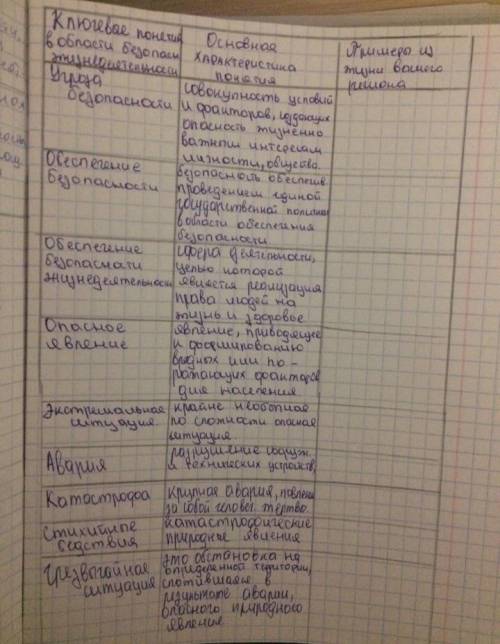 Ключевые понятия
в области безопасн
жизнедеятельности
Основная
характеристика
понятия
Примеры из
жизни вашего
региона
Угроза
безопасности
совокупность условий
и факторов, создающих
опасность жизненно
важным интересам
личности, общества.
Обеспечение
безопасности
безопасность обеспечив.
проведением единой
государственной политики
в области обеспечения
безопасности
Обеспечение
безопасности
жизнедеятельности
сфера деятельности,
целью которой
является реализация
права людей на
жизнь и здоровье
Опасное
явление
явление, приводящее
к формированию
вредных или по-
ражающих факторов
для населения
Экстремальная
ситуация
крайне необычная
по сложности опасная
ситуация
Авария
разрушение сооруж.
и технических устройств.
Катастрофа
крупная авария, повлекш
за собой человеч. жертвы.
Стихийное
бедствия
катастрофические
природные явления
Чрезвычайная
ситуация
это обстановка на
определенной территории,
сложившаяся в
результате аварии,
опасного природного
явления